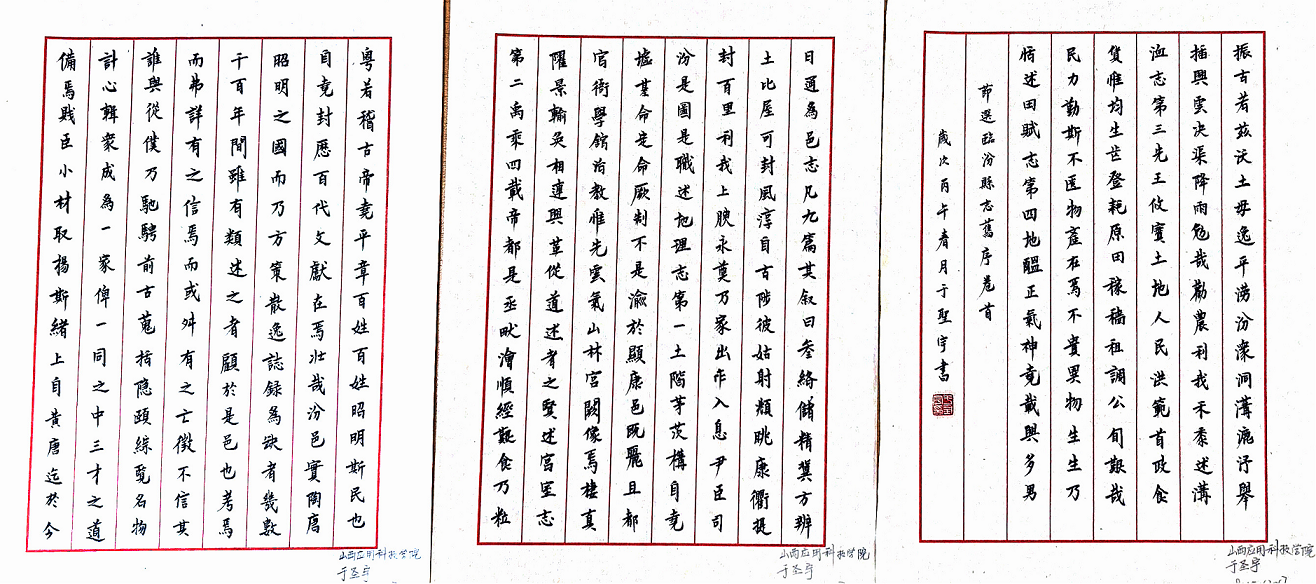 粤若稽古帝尭平章百姓百姓昭明斯民也
自尭封歴百代文獻在焉壮哉汾邑實陶唐
昭明之國而乃方策散逸誌録為缺者幾數
千百年間雖有類述之者顧於是邑也考焉
而弗詳有之信焉而或舛有之亡徵不信其
誰與從僕乃馳騁前古蒐括隐頤綜覧名物
計心輯衆成為一家俾一同之中三才之道
備焉賤臣小材取楊斯緒上自黄唐迄於今
日通為邑志凡九篇其叙曰参絡儲精冀方辨
土比屋可封風淳自古陟彼姑射類眺康衢提
封百里利我上腴永奠乃家出作入息尹臣司
汾是圖是職述地理志第一土階茅茨構自尭
墟基命定命厥制不是瀹於顯康邑既麗且都
官衙學館治教惟先雲氣山林宮闕像焉棲真
隠景輪奐相連興革從道述者之賢述宮室志
第二禹乘四載帝都是丞畎澮順經艱食乃粒
振古若兹沃土毋逸平澇汾㴇澗溝漉汙舉
插興雲决渠降雨勉哉勸農利我禾黍述溝
洫志第三先王攸寳土地人民洪範首政食
貨惟均生齒登耗原田稼穡租調公旬艱哉
民力勤斯不匱物産在焉不貴異物生生乃
恪述田賦志第四地醞正氣神尭載興多男
節選臨汾縣志舊序卷首
歲次丙午春月于聖宇書
山西应用科技学院
于圣宇
山西应用科技学院
于圣宇
山西应用科技学院
于圣宇